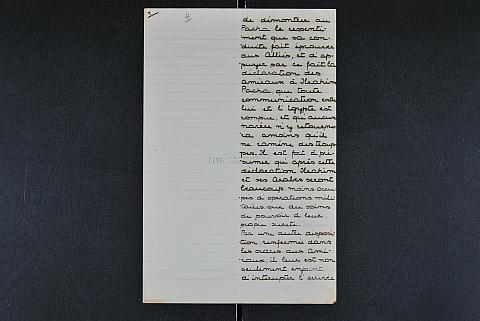 2 4
de démontrer au
Pacha le ressenti-
ment que sa con-
duite fait éprouver
aux Alliés, et d'ap-
puyer par ce fait la
déclaration des
amiraux à Ibrahim
Pacha, que toute
communication entre
lui et l'Egypte est
rompue, et qu'aucun
navire n'y retourne-
ra amoins qu'il
ne ramène des troup-
pes. Il est fort à pré-
sumer qu'après cette
déclaration Ibrahim
et ses Arabes seront
beaucoup moins occu-
pés d'opérations mili-
taires que du soins
de pourvoir à leur
propre sureté.
Par une autre disposi-
tion renfermée dans
les ordres aux Ami-
raux, il leur est non
seulement enjoint
d'intercepter l'arrivée